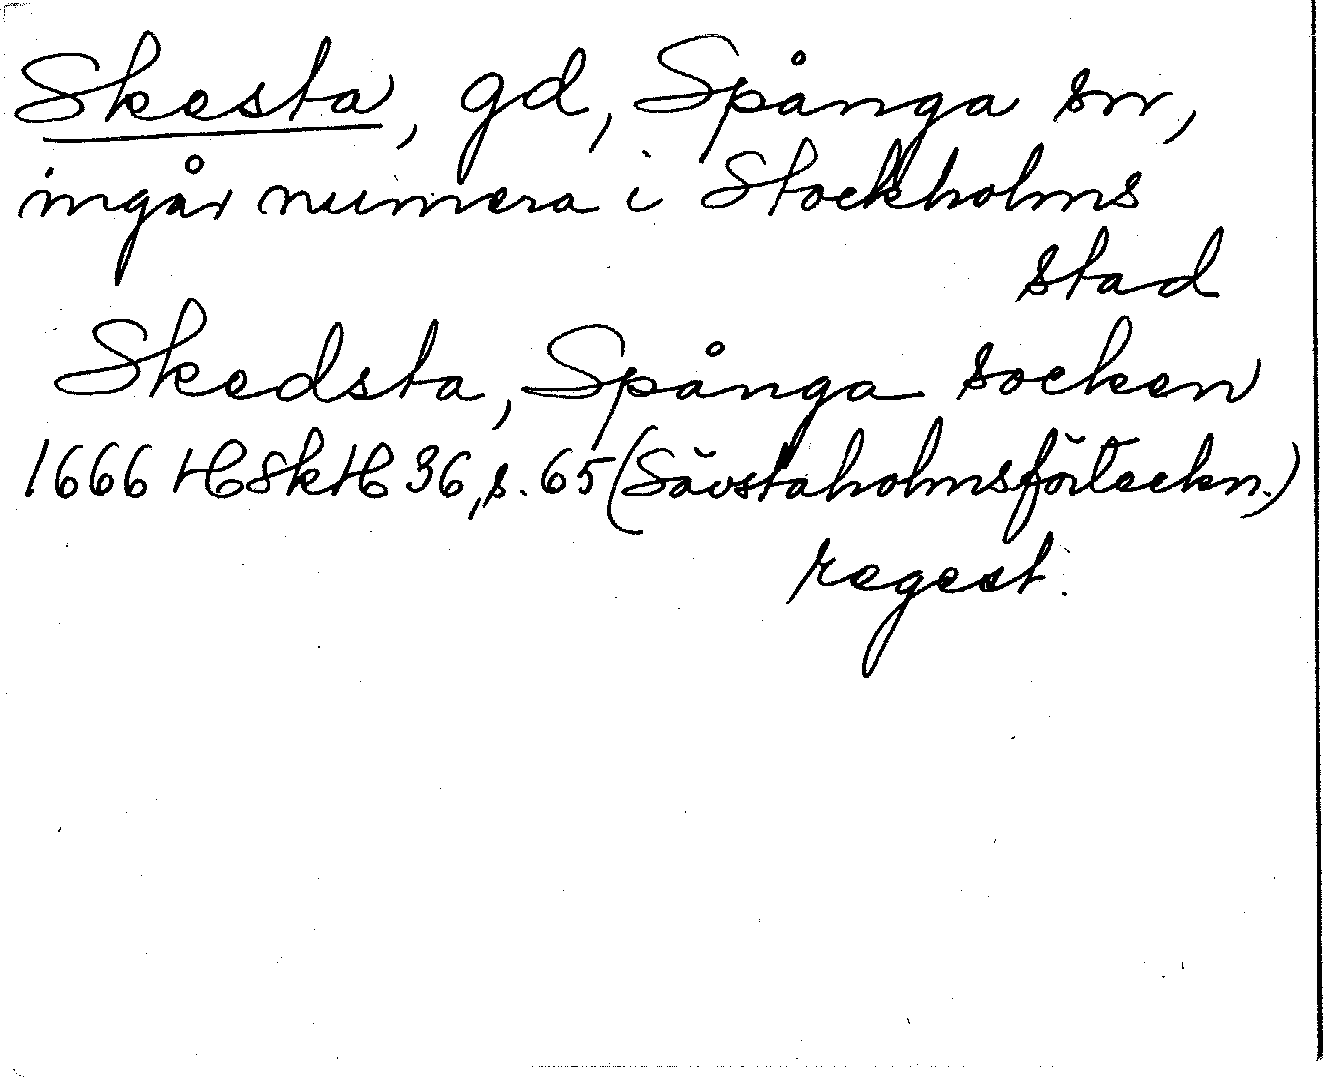 Skesta, gd, Spånga sn,
ingår numera i Stockholms
stad
Skedsta, Spånga socken
1666 HSkH 36, s. 65 (Sävstaholmsförteckn.)
regest.